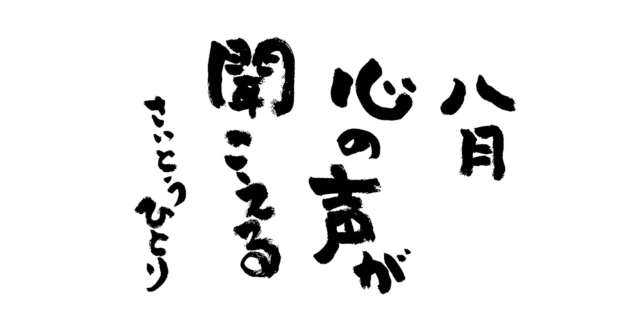 八月
心の声が
聞こえる
さいとうひとり